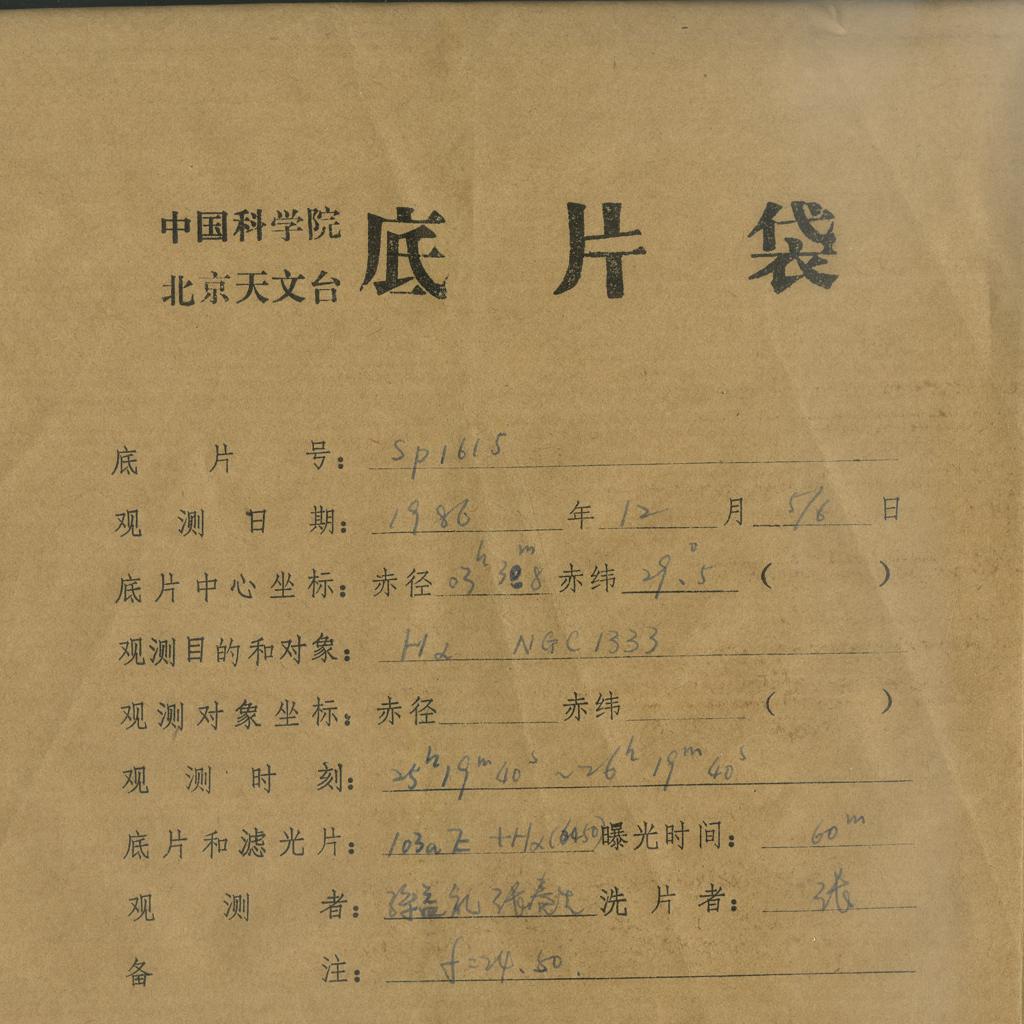 中国科学院
北京天文台
底片袋
底片号：Sp1615
观测日期：1986年12月5/6日
底片中心坐标：赤径03h 30m.8赤纬29°.5（ ）
观测目的和对象：Hα NGC1333
观测对象坐标：赤径 赤纬 （ ）
观测时刻：25h19m40s~26h19m40s
底片和滤光片：103aE +Hα(6450)曝光时间：60m
观测者：张 洗片者：张
备注：f=24.50.